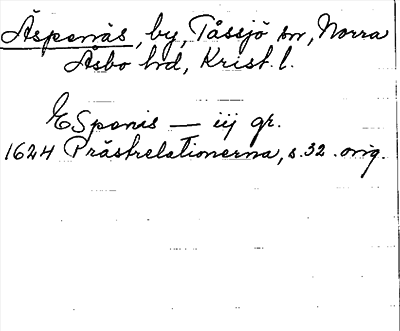 Äspenäs, by, Tåssjö sn, Norra
Åsbo hd, Krist. l.
ESpenis — iij gr.
1624 Prästrelationerna, s. 32. orig.